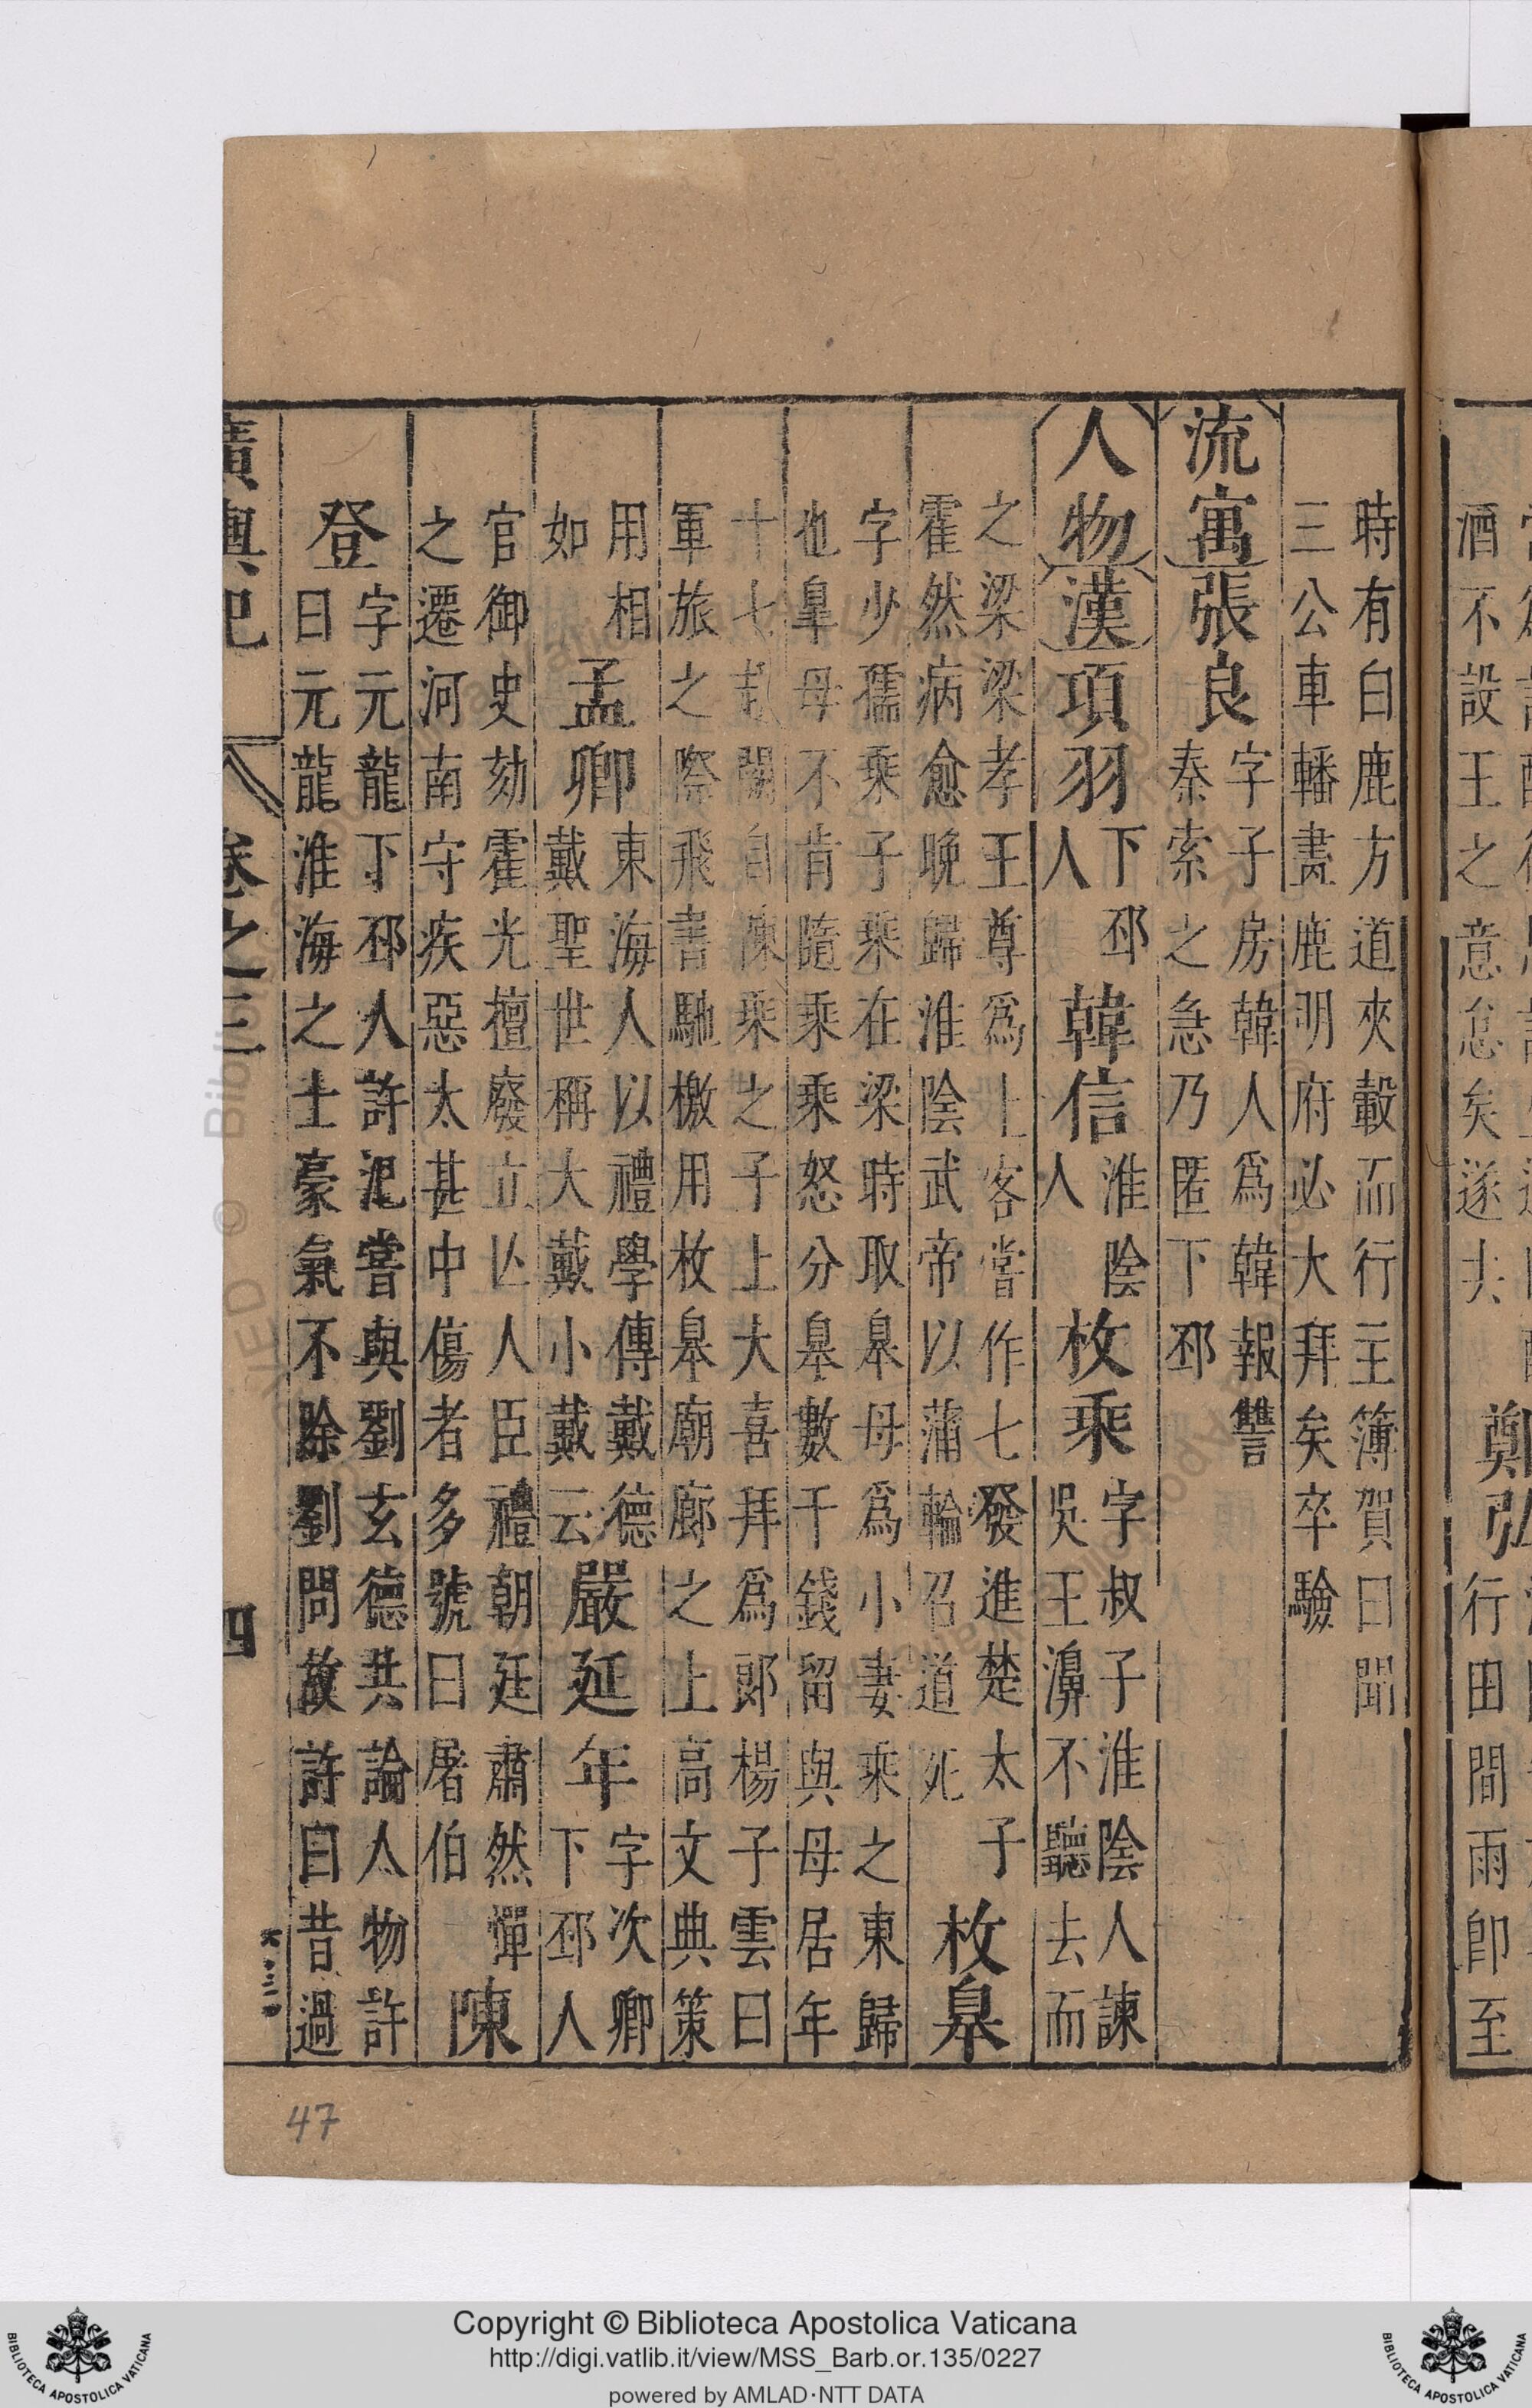 時有白鹿方道夾轂而行主簿賀曰聞
三公車轓畫鹿明府必大拜矣卒驗
流寓張良字子房韓人爲韓報讐
秦索之急乃匿下邳
人物漢項羽下邳人韓信淮陰人枚乘字叔子淮陰人諫
吳王濞不聽去而
之梁梁孝王尊爲上客嘗作七發進楚太子
霍然病愈晚歸淮陰武帝以蒲輪召道死枚臯
字少孺乘子乘在梁時取臯母爲小妻乘之東歸
也臯母不肯隨乘乘怒分臯數千錢留與母居年
十七詣闕自陳乘之子上大喜拜爲郎楊子雲曰
軍旅之際飛書馳檄用枚臯廟廊之上高文典策
用相如孟卿東海人以禮學傳戴德
戴聖世稱大戴小戴云嚴延年字次卿
下邳人
官御史劾霍光擅廢立亾人臣禮朝廷肅然憚
之遷河南守疾惡太甚中傷者多號曰屠伯陳
登字元龍下邳人許汜嘗與劉玄德共論人物許
曰元龍淮海之士豪氣不除劉問故許曰昔過
廣輿記
卷之三
四
酒不設王之意怠矣遂去
鄭弘
行田間雨卽至
47
Copyright © Biblioteca Apostolica Vaticana
http://digi.vatlib.it/view/MSS_Barb.or.135/0227
powered by AMLAD·NTT DATA
BIBLIOTECA APOSTOLICA VATICANA
BIBLIOTECA APOSTOLICA VATICANA